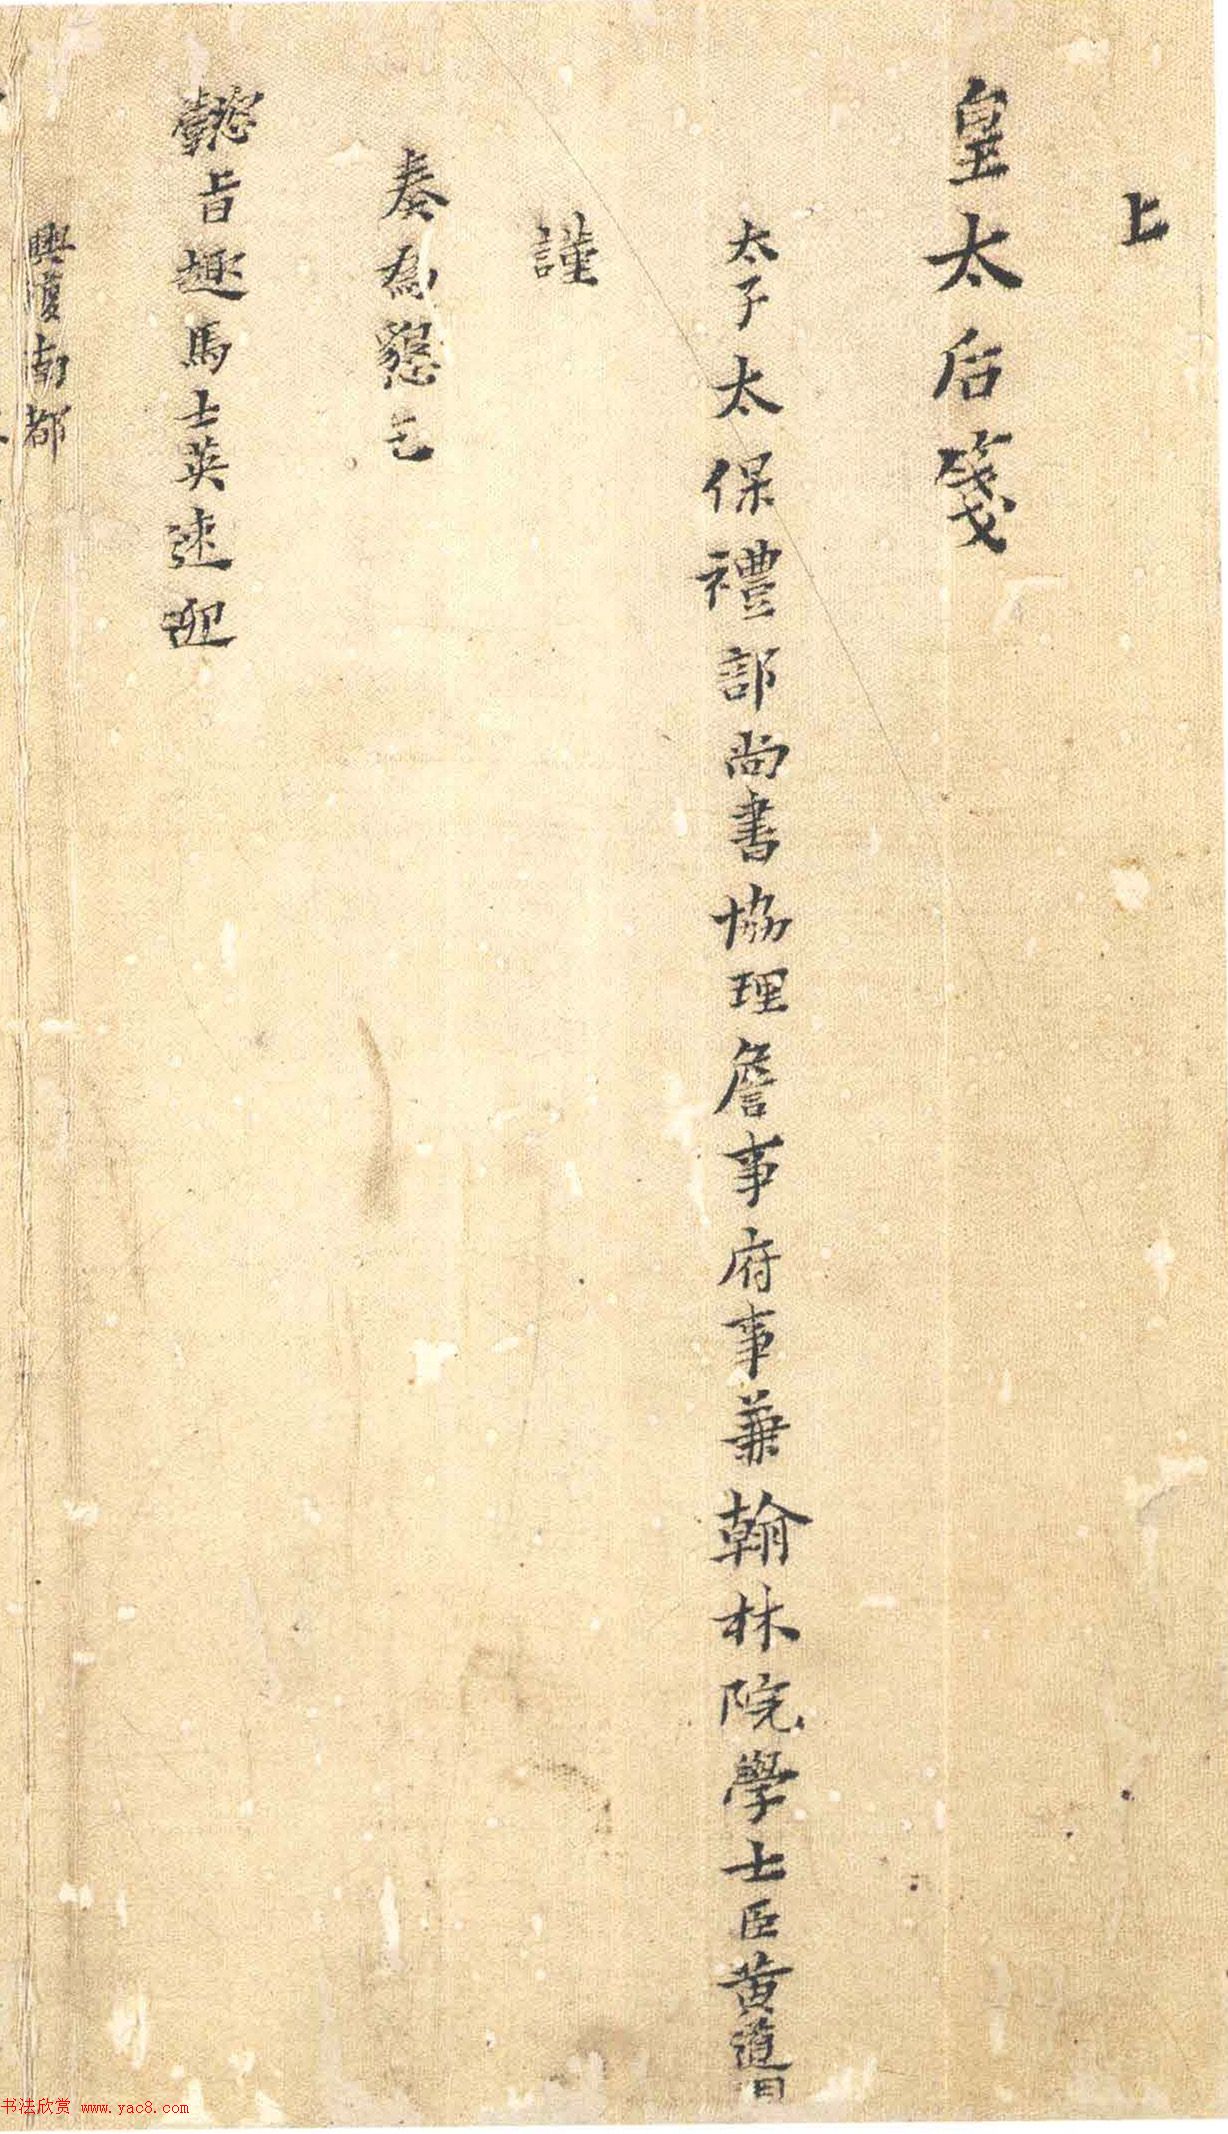 上
皇太后箋
太子太保禮部尚書協理詹事府事兼翰林院學士臣黃道周
謹
奏為懇乞
懿旨趣馬士英速迎
興復南都
书法欣赏 www.yac8.com